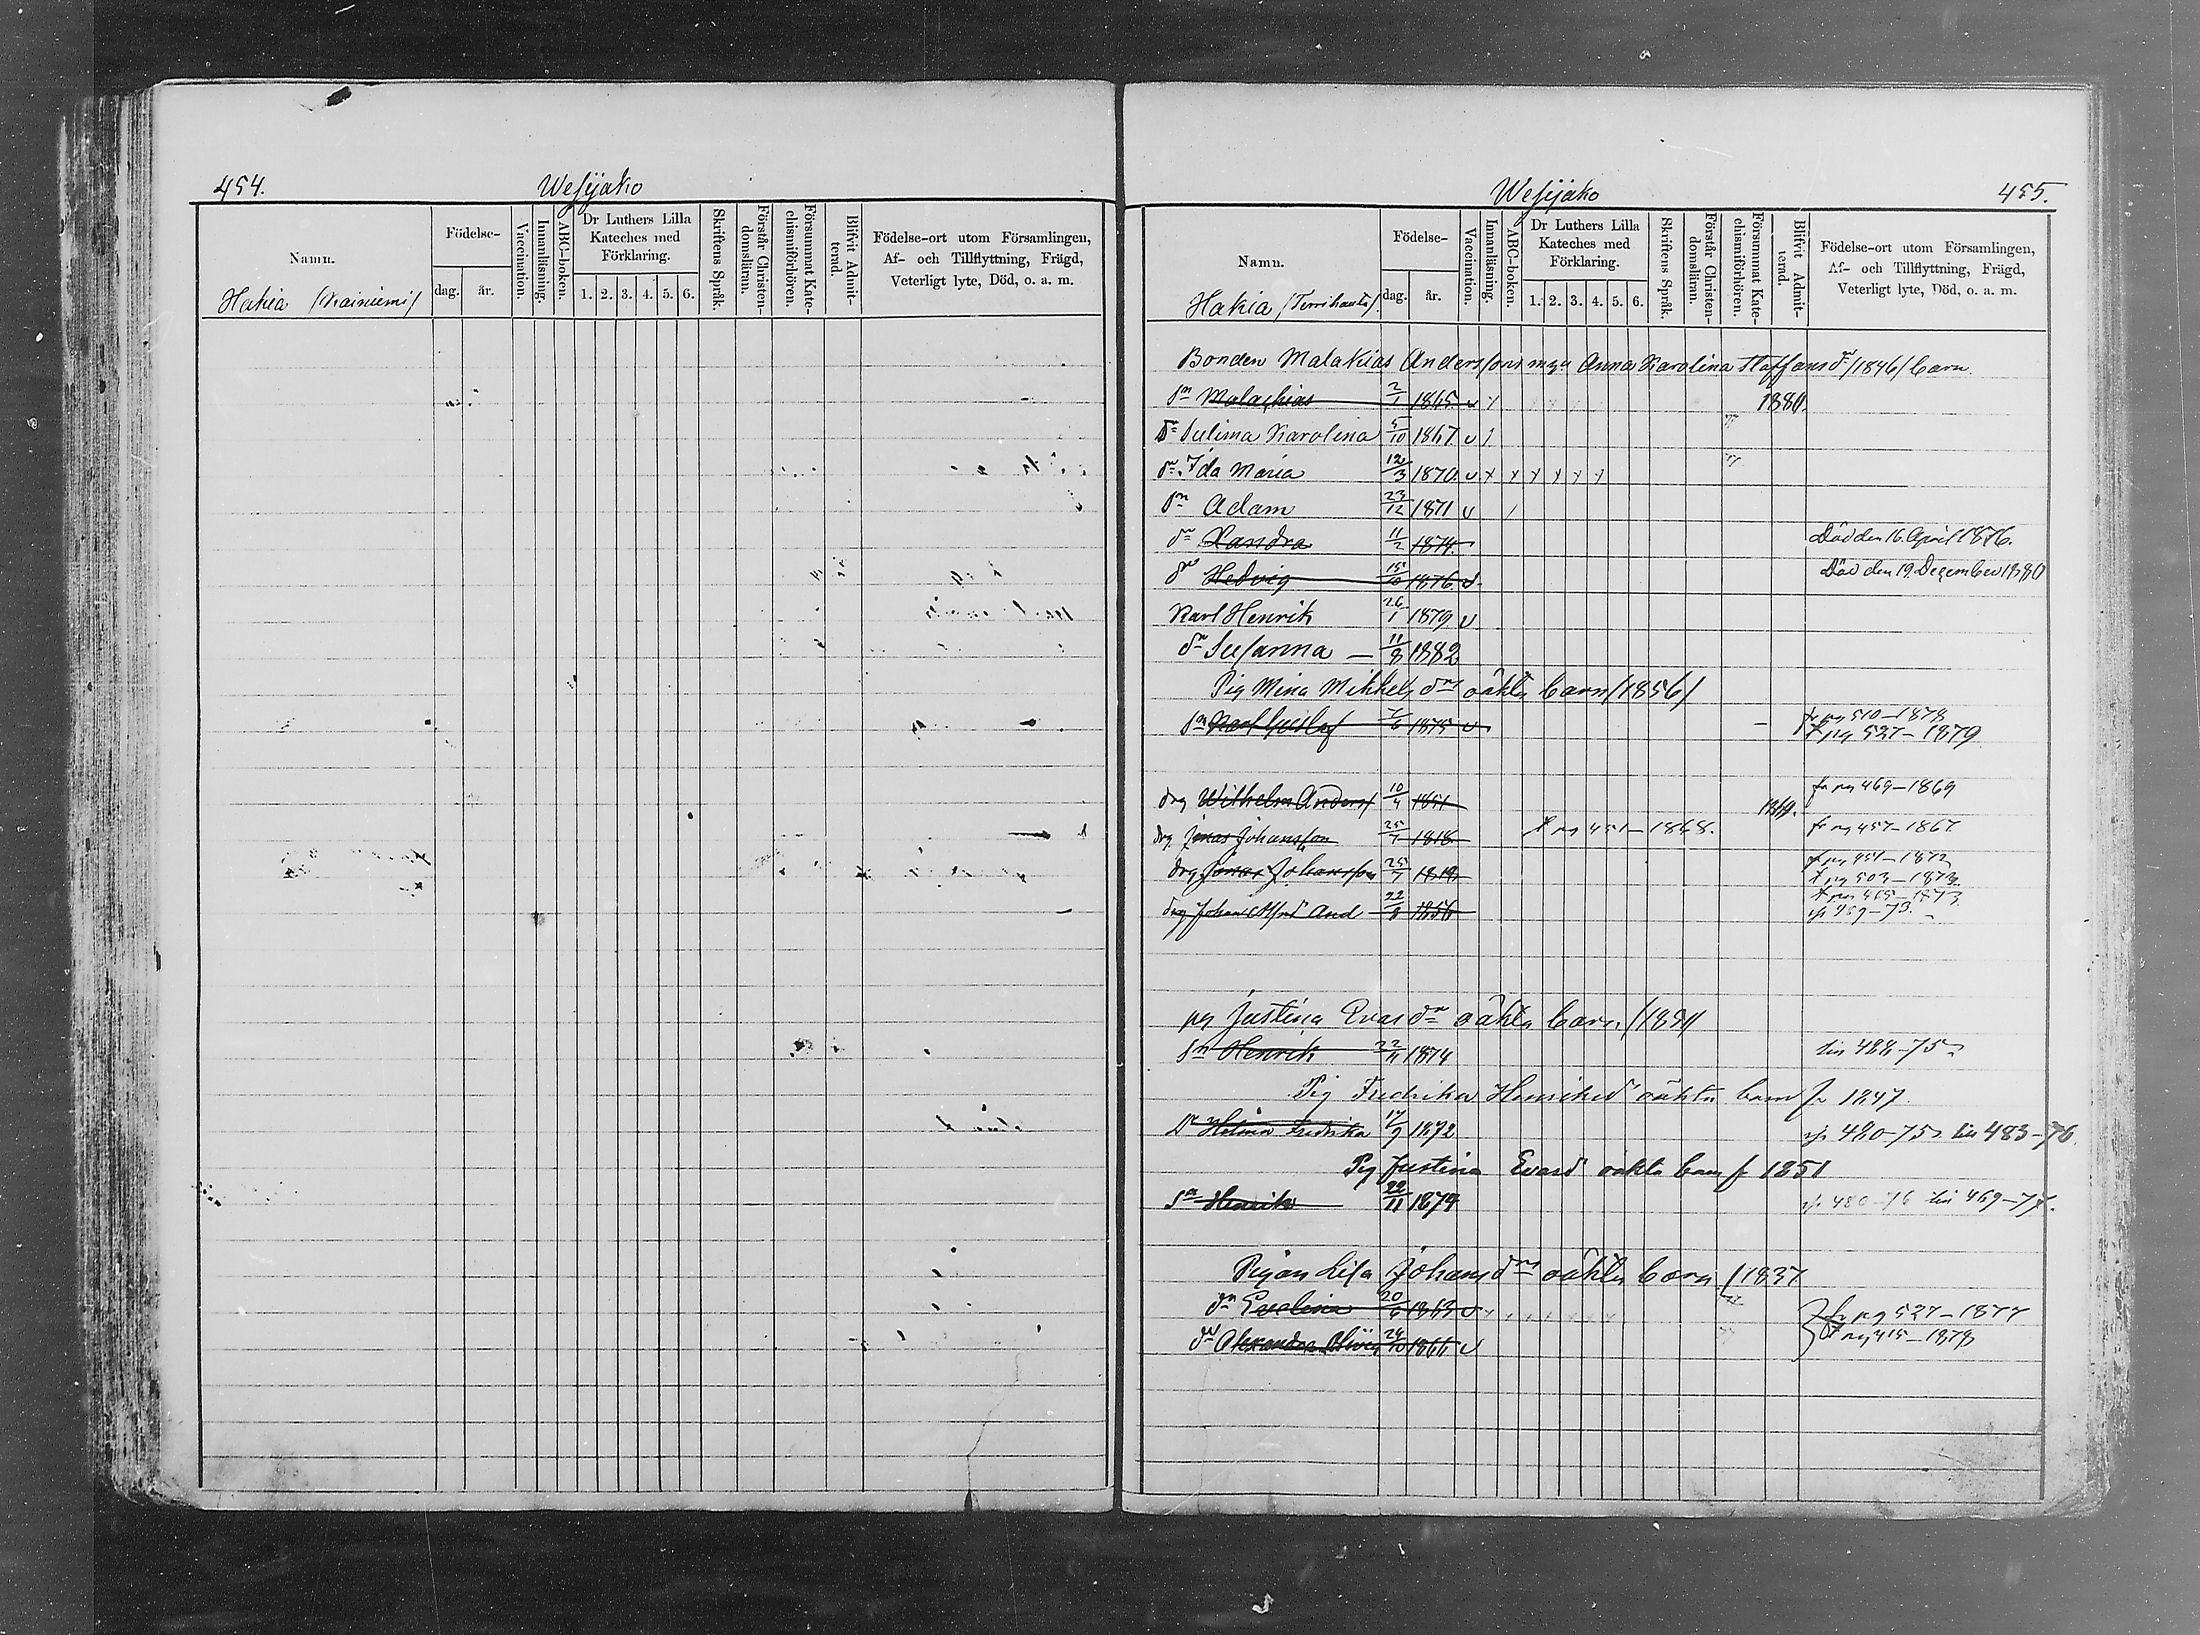 454.
Wesijako
Namn.
Födelse-
dag.
år.
Vaccination.
Innanläsning.
ABC-boken.
Dr Luthers Lilla
Kateches med
Förklaring.
1. 2. 3. 4. 5. 6.
Skriftens Språk.
Förstår Christen-
domsläran.
Försummat Kate-
chismiförhören.
Blifvit Admit-
terad.
Födelse-ort utom Församlingen,
Af- och Tillflyttning, Frägd,
Veterligt lyte, Död, o. a. m.
Hakia /Kainiemi/
Wesijako
455.
Namn.
Födelse-
dag.
år.
Vaccination.
Innanläsning.
ABC-boken.
Dr Luthers Lilla
Kateches med
Förklaring.
1. 2. 3. 4. 5. 6.
Skriftens Språk.
Förstår Christen-
domsläran.
Försummat Kate-
chismiförhören.
Blifvit Admit-
terad.
Födelse-ort utom Församlingen,
Af- och Tillflyttning, Frägd,
Veterligt lyte, Död, o. a. m.
Hakia /Terrihauta/.
Bonden Malakias Anderssons Anna Karolina Staffansdr /1846/ barn.
sn Malachias 2/1 1865 v 1880.
dr Sulima Karolina 5/10 1867 v
dr Ida Maria 12/3 1870 v x x x x x x
sn Adam 23/12 1871 v
dr Xandra 11/2 1874 Död den 16. April 1876.
dr Hedvig 15/10 1876 v Död den 19. December 1880
Karl Henrik 26/1 1879 v
dr Susanna — 11/8 1882
Pig Mina Mikkelsdrs oäkta barn /1856/
sn Karl Gustaf 7/6 1875 v fr pg 510–1878
t pg 527–1879
drg Wilhelm Anders 10/4 1851 1869. fr pg 469–1869
drg Jonas Johansson 25/7 1818 t pg 451–1868. fr pg 457–1867
drg Jonas Johansson 25/7 1818 fr pg 451–1872
t pg 503–1873.
drg Johan Alfred And 22/8 1856 t pg 465–1873
459–73.
pg Justina Evasdr oäkta barn /1851
sn Henrik 22/11 1874 till 488–75
Pig Fredrika Henriksd oäkta barn f. 1847.
dr Helena Fredrika 17/9 1872 480–75 till 483–76.
Pig Justina Evasd oäkta barn f 1851
sn Henrik 22/11 1874 480–76 till 469–77.
Pigan Lisa Johansdrs oäkta barn /1837
dr Evelina 20/6 1863 v fr pg 527–1877
dr Alexandra Olivia 24/10 1866 v t pg 415–1878